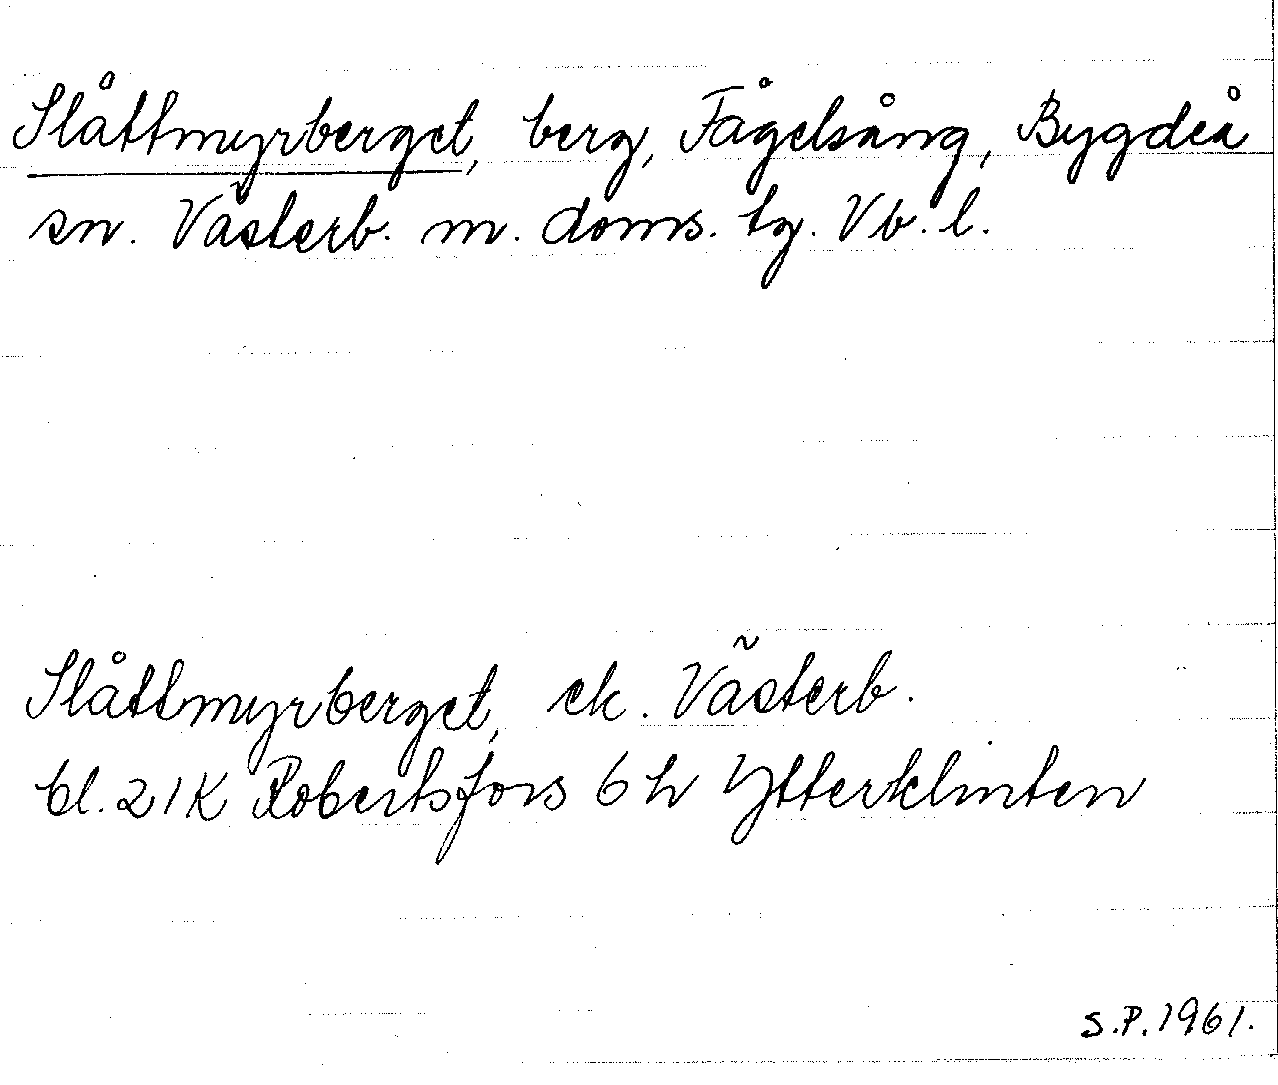 Slåttmyrberget, berg, Fågelsång, Bygdeå
sn. Västerb. m. doms. tg. Vb. l.
Slåttmyrberget, ek. Västerb.
bl. 21K Robertsfors 6 h Ytterklinten
S.P. 1961.